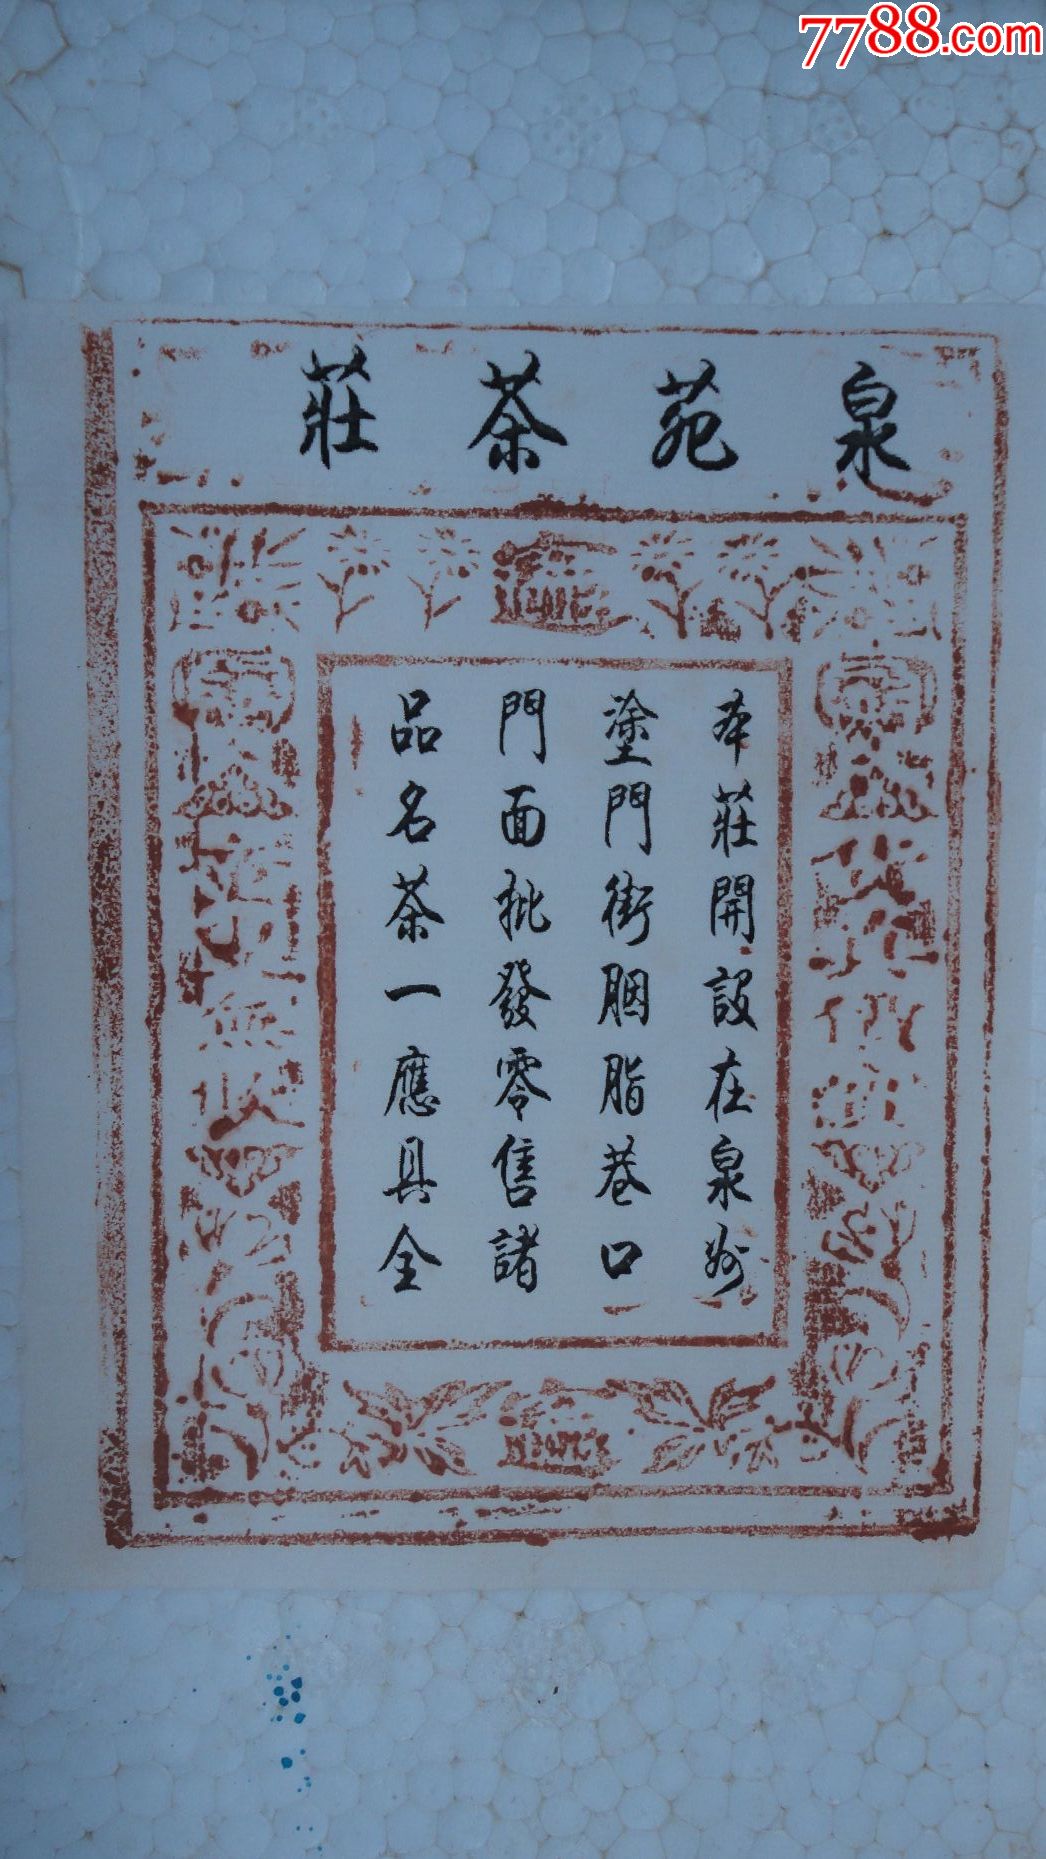 7788.com
泉苑茶莊
本莊開設在泉州
塗門街胭脂巷口
門面批發零售諸
品名茶一應具全